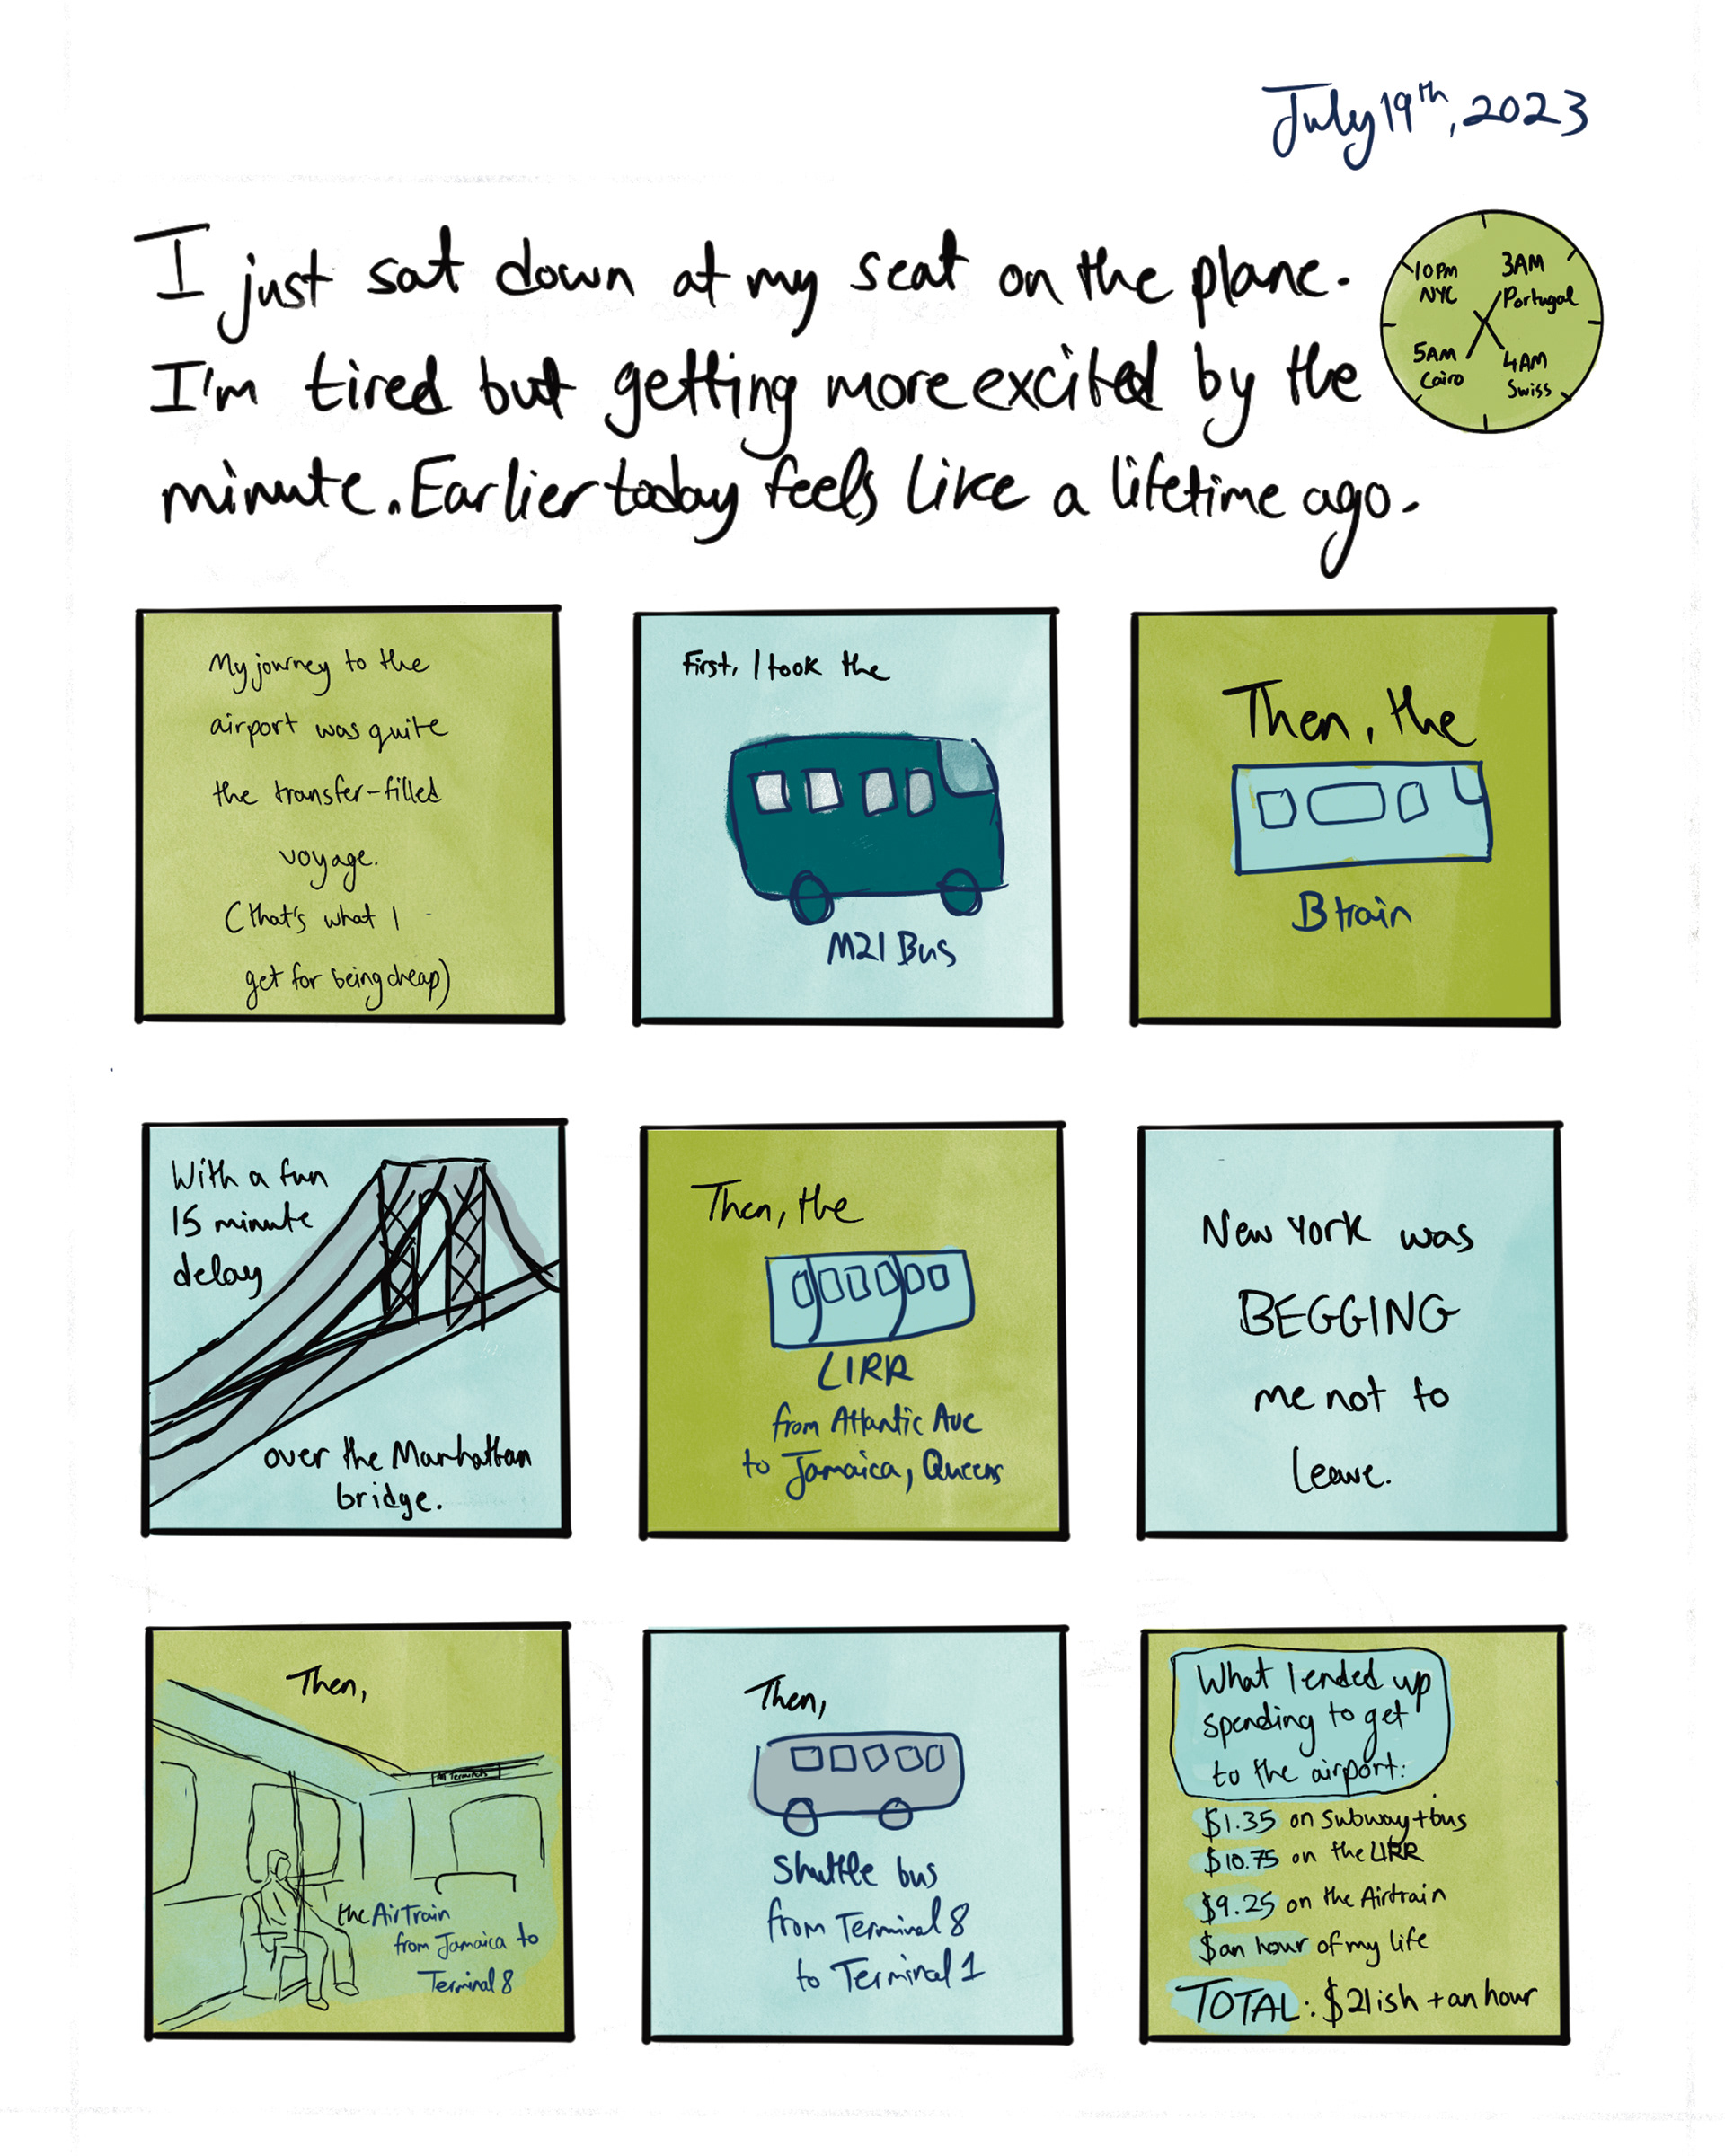 July 19th, 2023
I just sat down at my seat on the plane.
I'm tired but getting more excited by the
minute. Earlier today feels like a lifetime ago.
10PM
NYC
3AM
Portugal
5AM
Cairo
4AM
Swiss
My journey to the
airport was quite
the transfer-filled
voyage.
(that's what I
get for being cheap)
First, I took the
M21 Bus
Then, the
B train
With a fun
15 minute
delay
over the Manhattan
bridge.
Then, the
LIRR
from Atlantic Ave
to Jamaica, Queens
New York was
BEGGING
me not to
leave.
Then,
All Terminals
the AirTrain
from Jamaica to
Terminal 8
Then,
Shuttle bus
from Terminal 8
to Terminal 1
What I ended up
spending to get
to the airport:
$1.35 on subway + bus
$10.75 on the LIRR
$9.25 on the Airtrain
$an hour of my life
TOTAL: $21ish + an hour